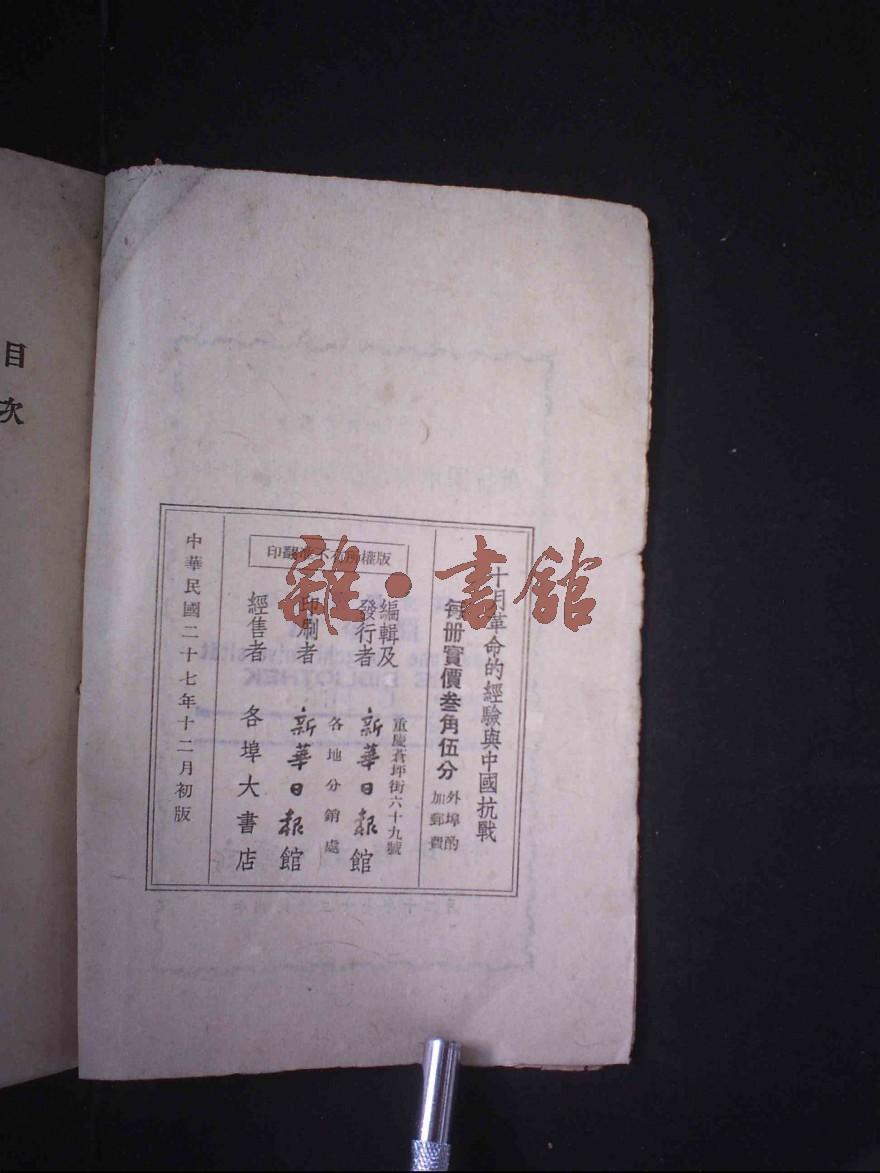 十月革命的經驗與中國抗戰
每册實價叁角伍分
外埠酌
加郵費
版權所有不准翻印
編輯及
發行者
重慶蒼坪街六十九號
新華日報館
各地分銷處
印刷者
新華日報館
經售者
各埠大書店
中華民國二十七年十二月初版
目次
雜·書館